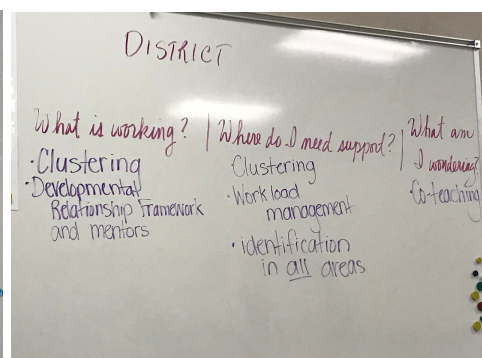 DISTRICT
What is working?
·Clustering
·Developmental
Relationship Framework
and mentors
Where do I need support?
Clustering
·Workload
management
·identification
in all areas
What am
I wondering?
·Co-teaching